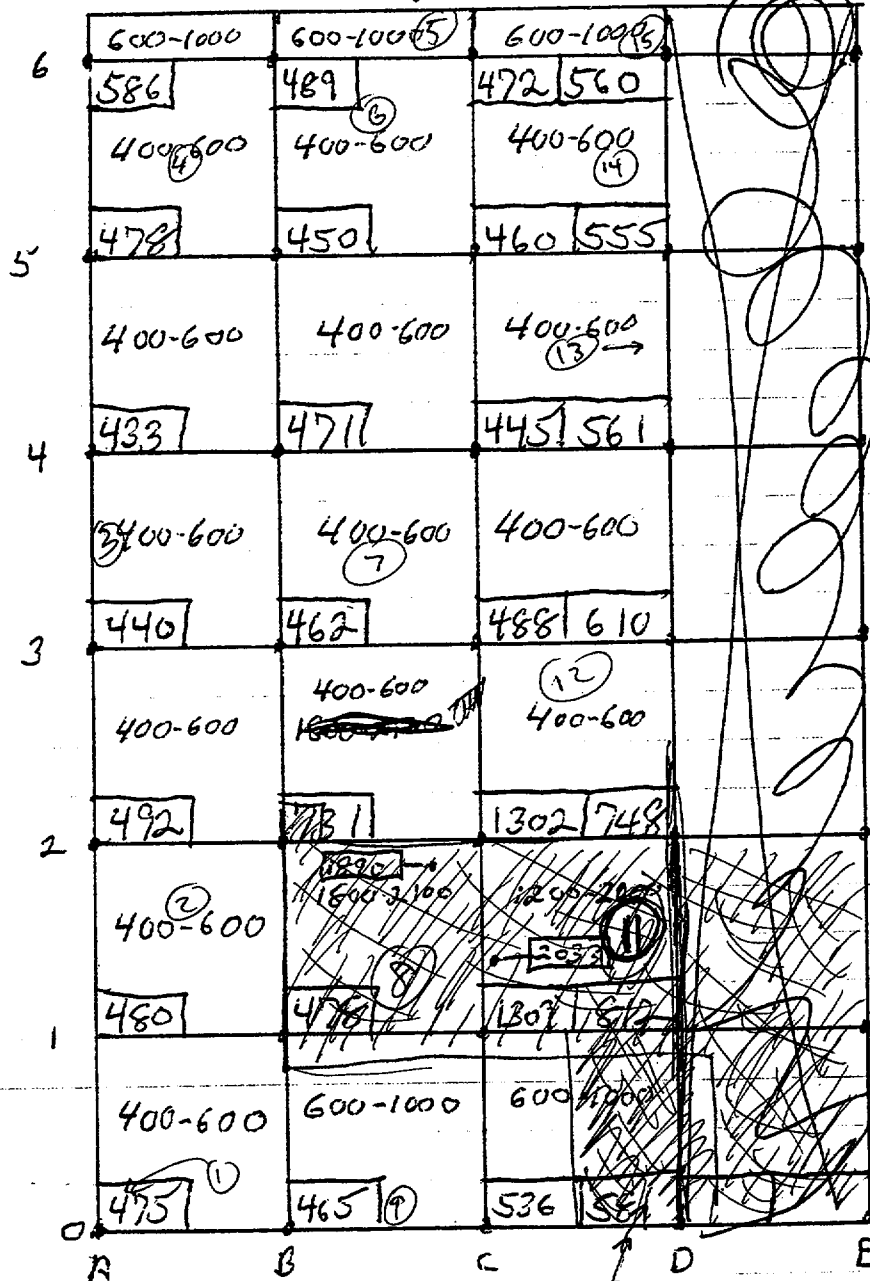 600-1000 600-1000 5 600-1000 15
6
586 489 472 560
6
400-600 400-600 400-600
4 14
478 450 460 555
5
400-600 400-600 400-600
13 →
433 471 445 561
4
3 400-600 400-600 400-600
7
440 462 488 610
3
400-600 12
400-600 400-600
492 731 1302 748
2
1890
2 1800-2100
400-600 11
8
480 478 1307 812
1
400-600 600-1000 600-1000
1
475 465 9 536
0
A B C D E